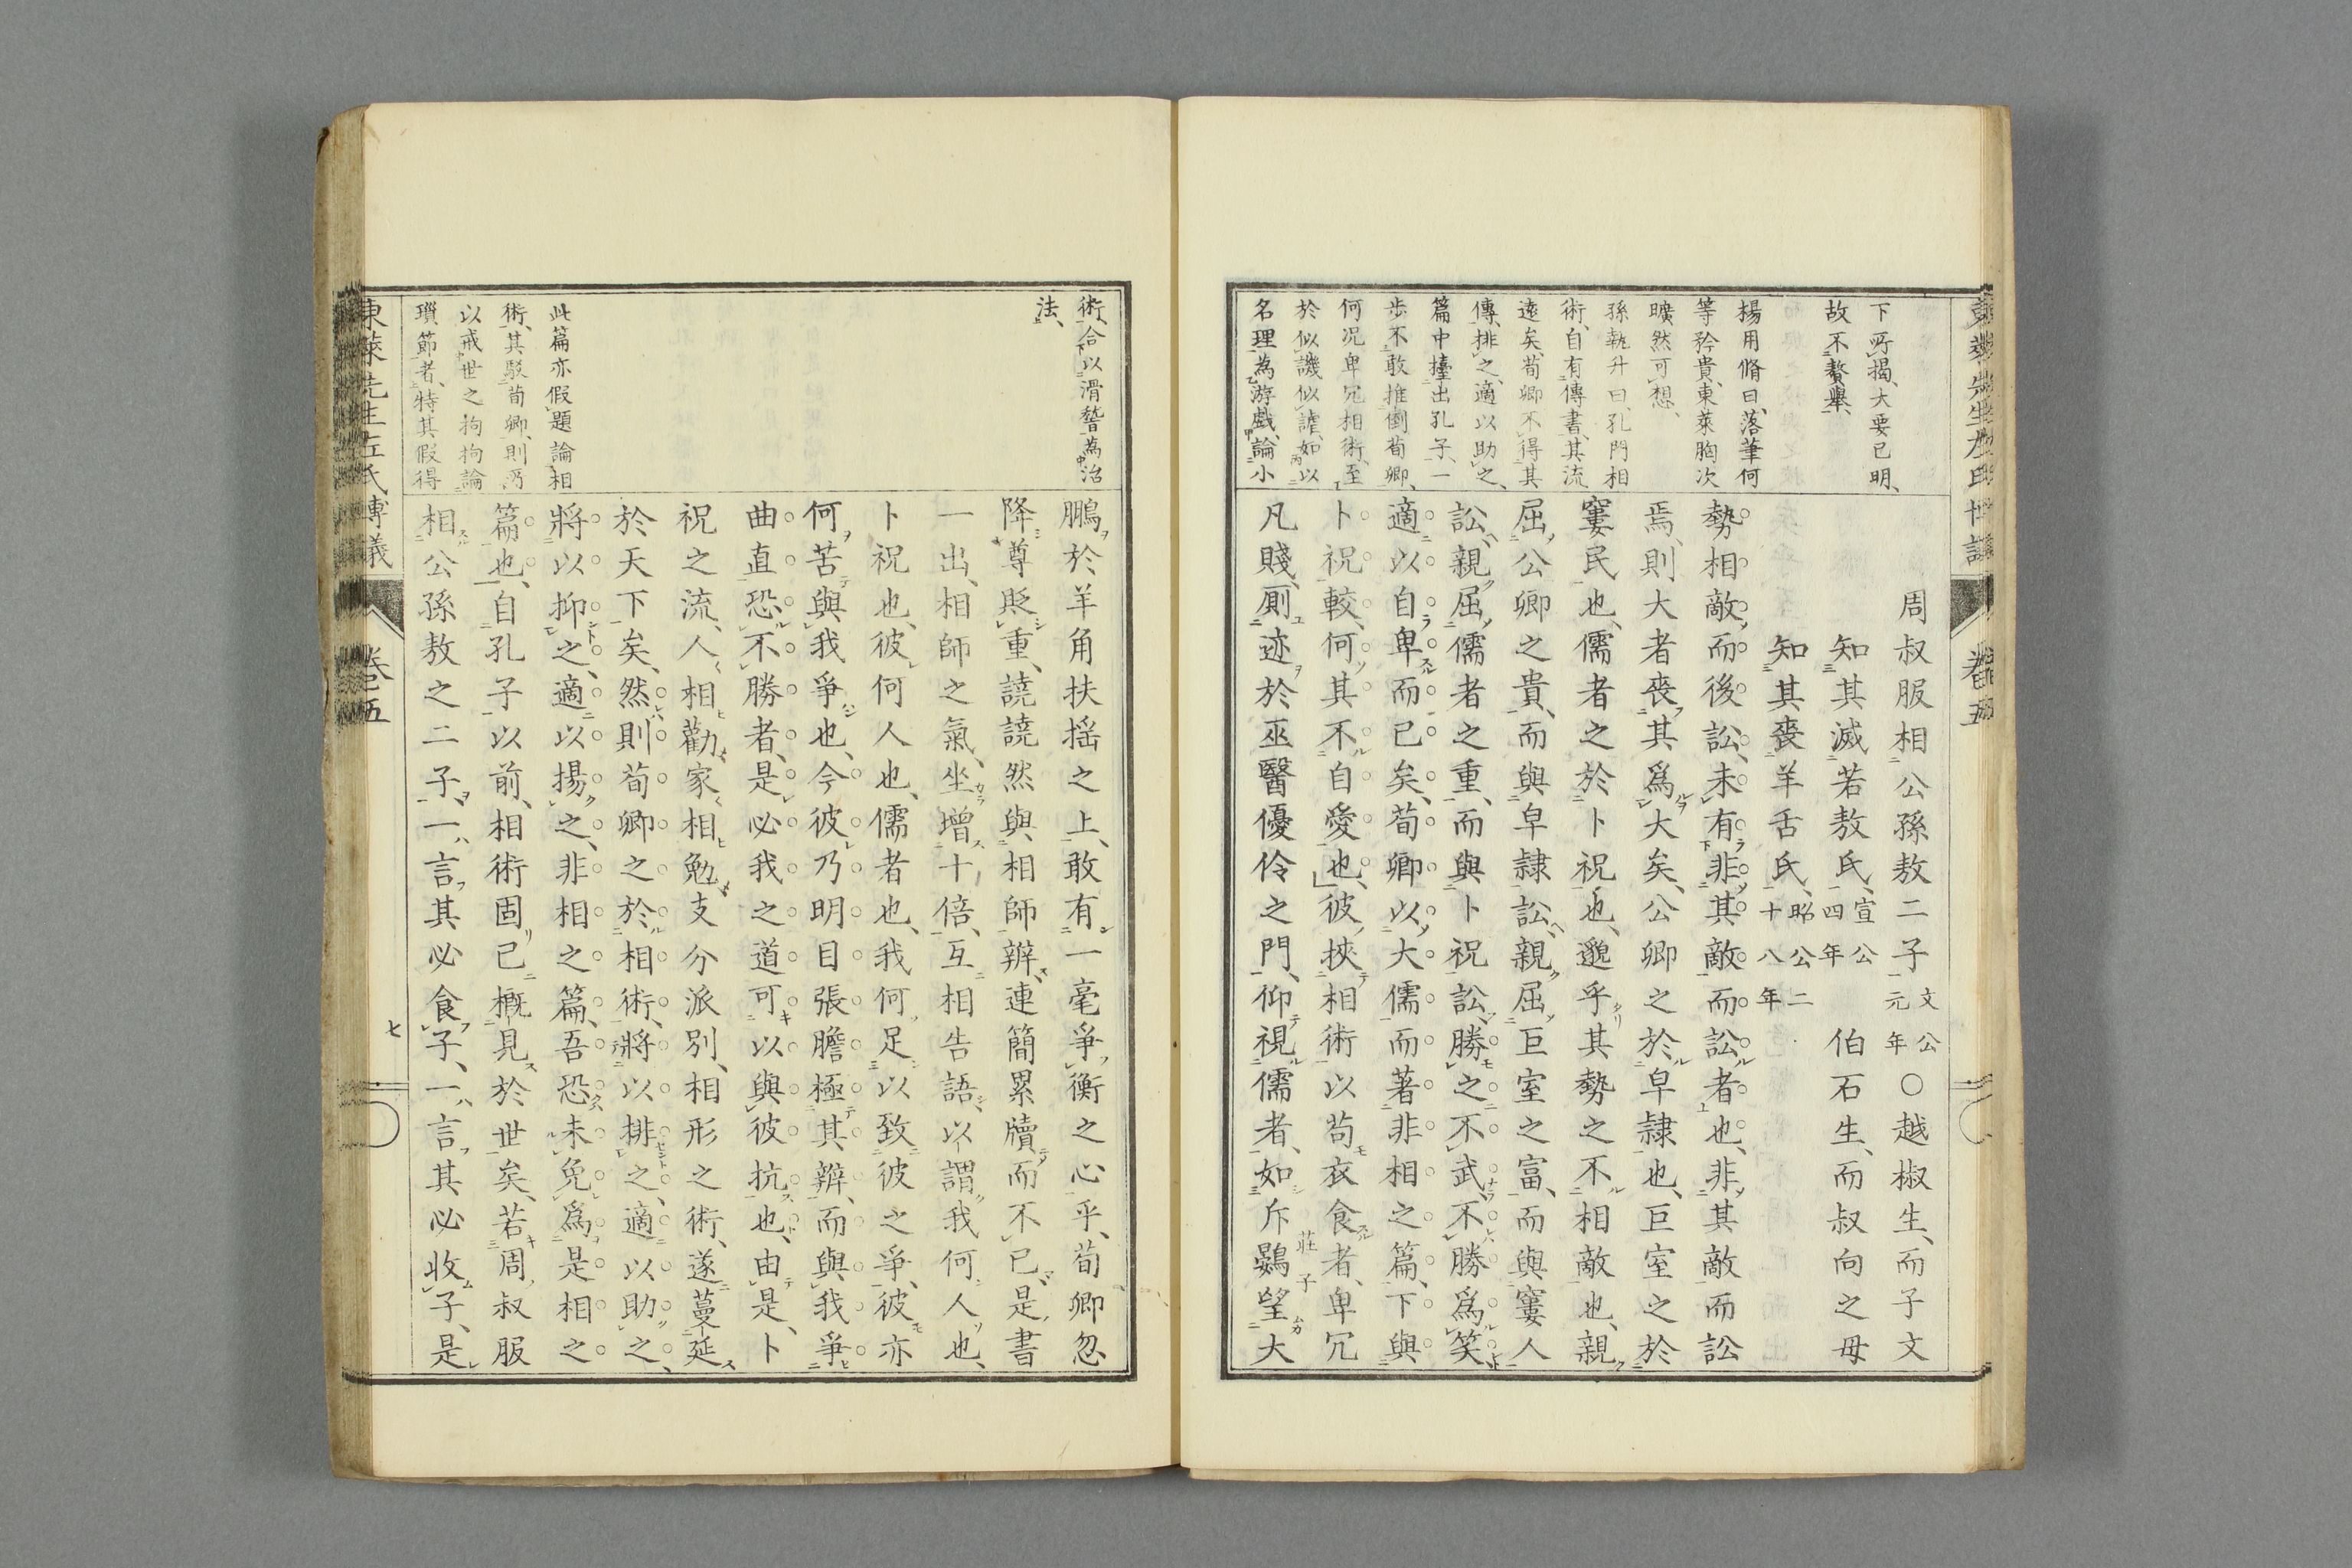 東萊先生左氏博議
卷五
下所揭、大要已明、
故不贅舉、
揚用脩曰、落筆何
等矜貴、東萊胸次
曠然可想、
孫執升曰、孔門相
術、自有傳書、其流
遠矣、荀卿不得其
傳、排之、適以助之、
篇中擡出孔子、一
步不敢推倒荀卿、
何況卑冗相術、至
於似譏似謔、如以
名理為游戲、論小
周叔服相公孫敖二子文公元年〇越椒生、而子文
知其滅若敖氏、宣公四年伯石生、而叔向之母
知其喪羊舌氏、昭公二十八年
勢相敵而後訟、未有非其敵而訟者也、非其敵而訟
焉、則大者喪其爲大矣、公卿之於皁隷也、巨室之於
窶民也、儒者之於卜祝也、邈乎其勢之不相敵也、親
屈公卿之貴、而與皁隷訟、親屈巨室之富、而與窶人
訟、親屈儒者之重、而與卜祝訟、勝之不武、不勝爲笑、
適以自卑而已矣、荀卿以大儒而著非相之篇、下與
卜祝較、何其不自愛也、彼挾相術以苟衣食者、卑冗
凡賤、厠迹於巫醫優伶之門、仰視儒者、如斥鷃望大
莊子
術、合以滑稽為治
法、
此篇亦假題論相
術、其駁荀卿、則乃
以戒世之拘拘論
瑣節者、特其假得
鵬於羊角扶揺之上、敢有一毫爭衡之心乎、荀卿忽
降尊貶重、譊譊然與相師辨、連簡累牘而不已、是書
一出、相師之氣、坐增十倍、互相告語、以謂我何人也、
卜祝也、彼何人也、儒者也、我何足以致彼之爭、彼亦
何苦與我爭也、今彼乃明目張膽極其辨、而與我爭
曲直、恐不勝者、是必我之道可以與彼抗也、由是、卜
祝之流、人人相勸、家家相勉、支分派別、相形之術、遂蔓延
於天下矣、然則荀卿之於相術、將以排之、適以助之、
將以抑之、適以揚之、非相之篇、吾恐未免爲是相之
篇也、自孔子以前、相術固已概見於世矣、若周叔服
相公孫敖之二子、一言其必食子、一言其必收子、是
東萊先生左氏博議
卷五
七